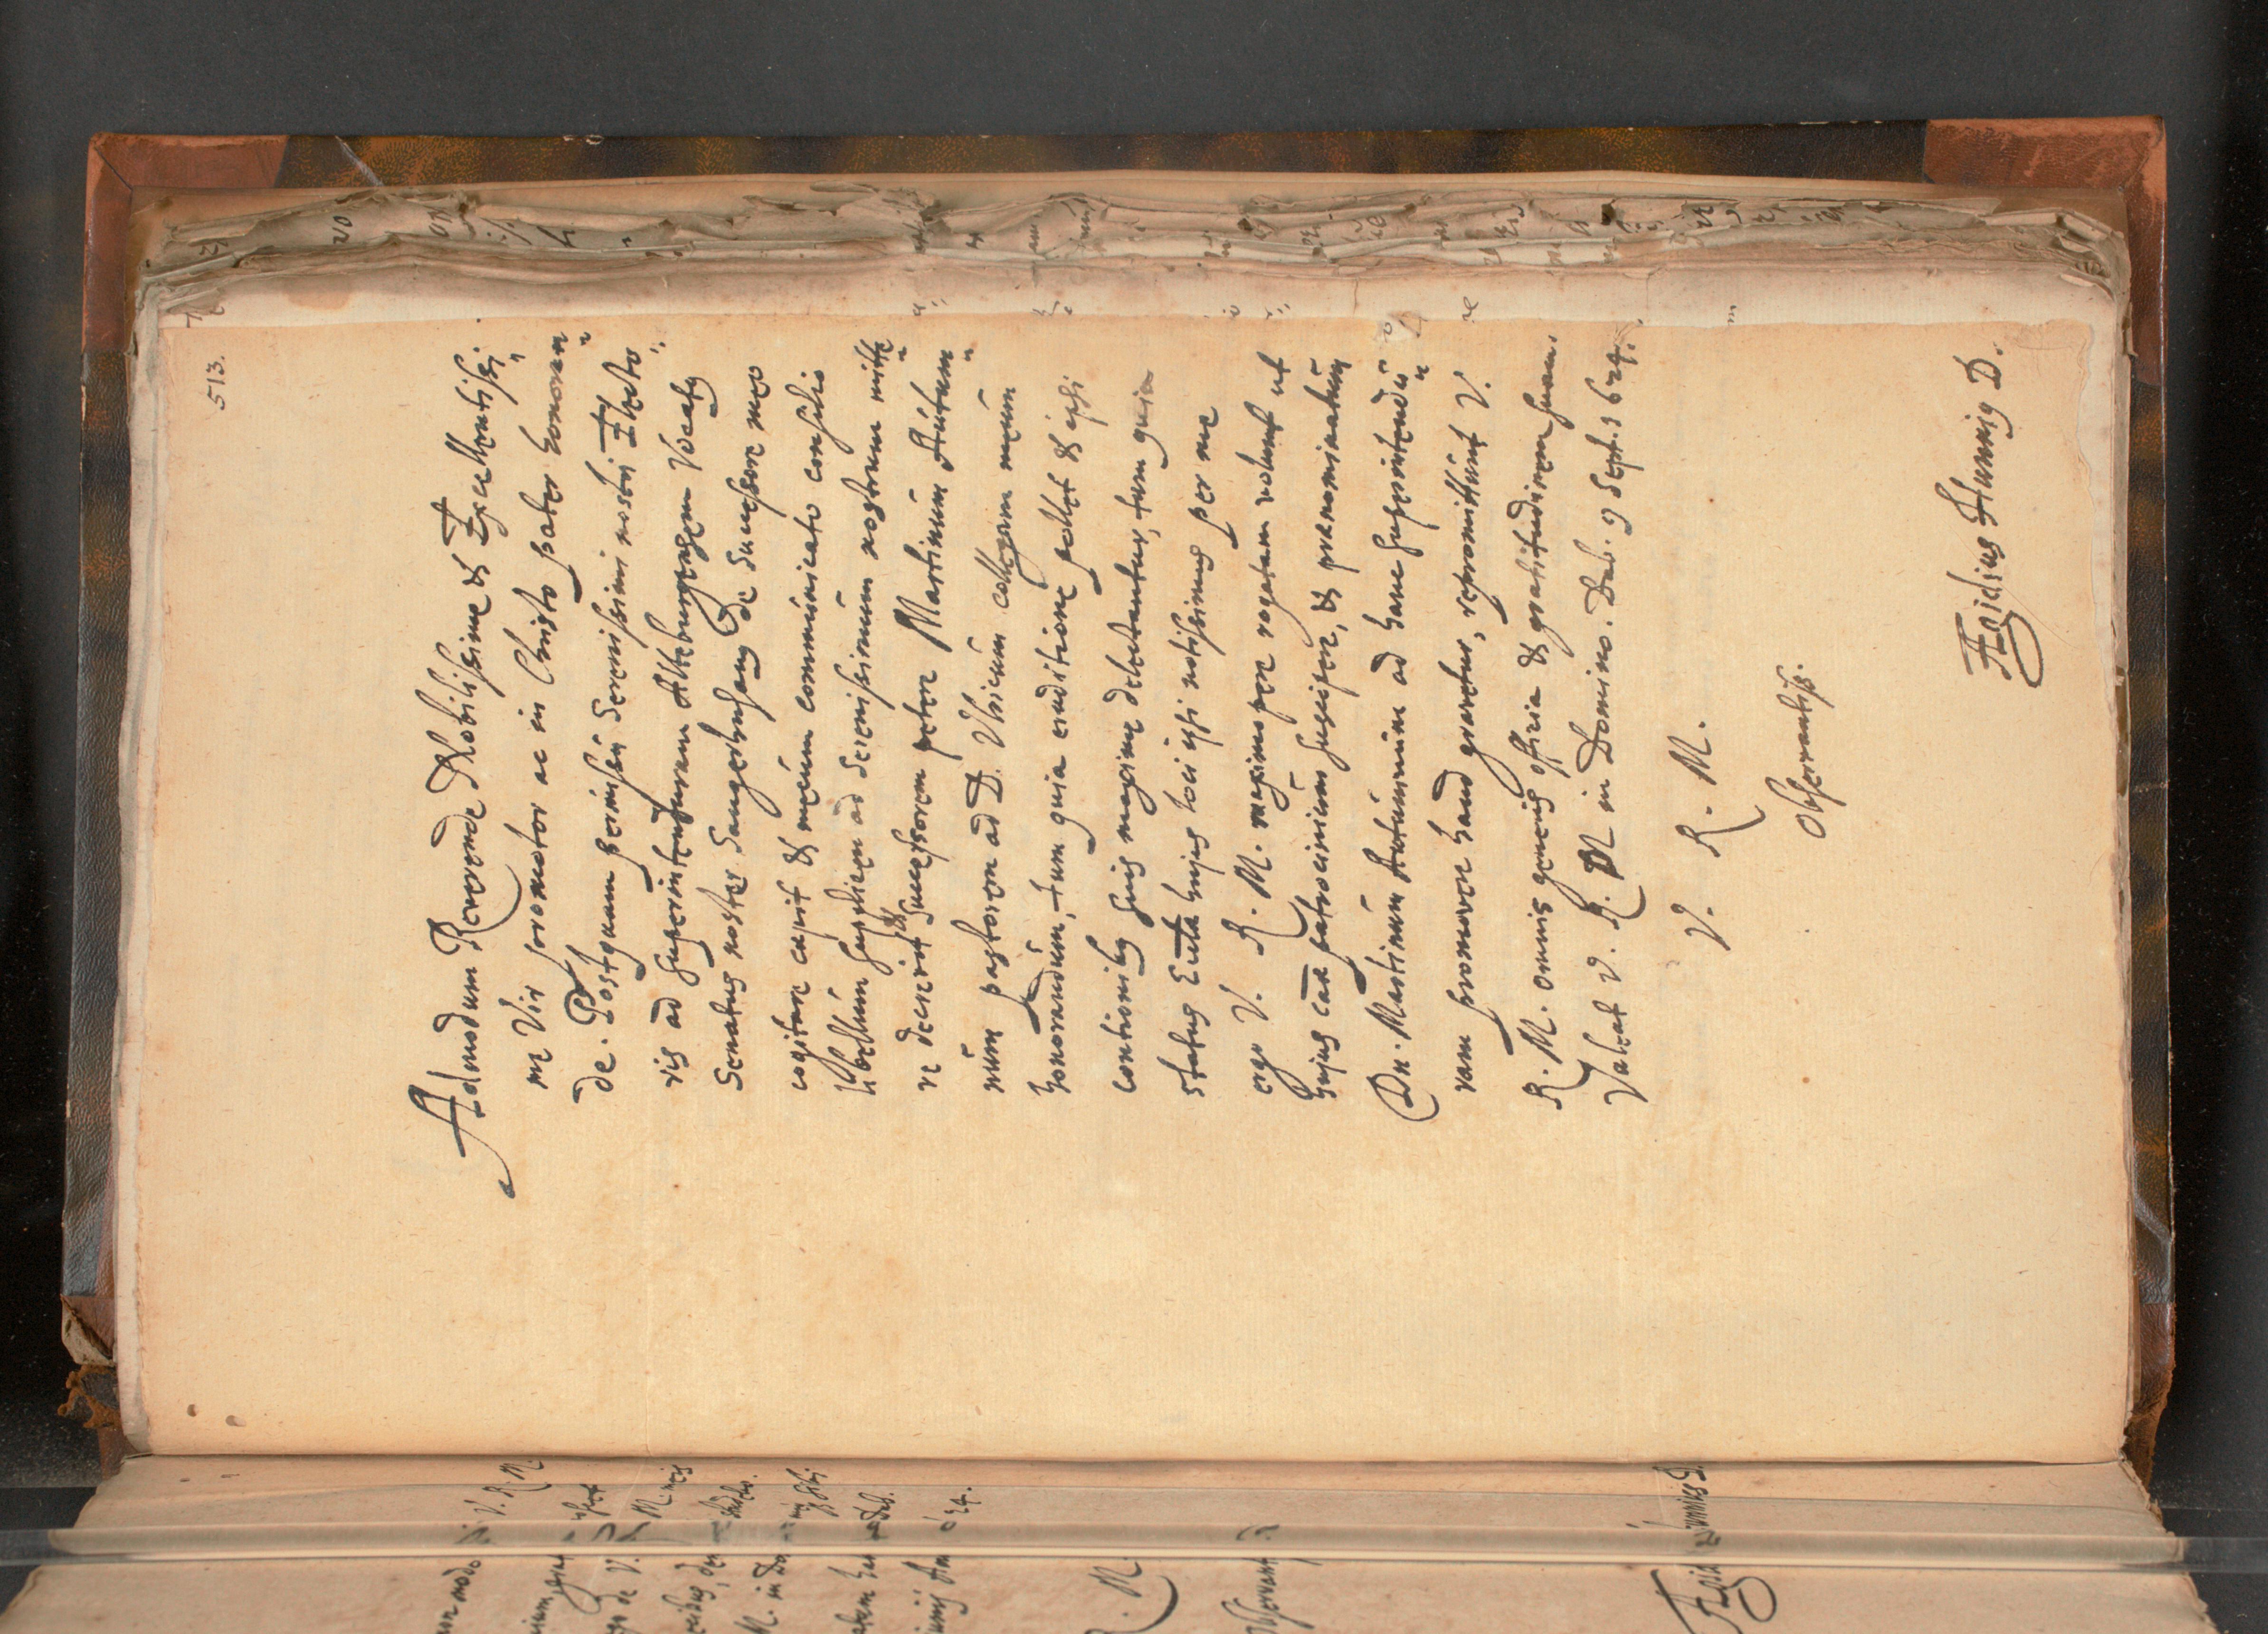 513.
Admodum Reverende Nobilissime & Excellentissi„
me Vir promotor ac in Christo pater honoran„
de. Postquam permissu Serenissimi nostri Electo„
ris ad superintendturam Alteburgensem vocatus
Senatus noster Sangerhusanus de successore meo
cogitare cepit & meum communicato consilio
libellum supplicem ad Serenissimum nostrum mitte„
re decrevit & successorem petere Martinum Autum„
num pastorem ad D. Ulricum collegam meum
honorandum, tum quia eruditione pollet & ipsi
contionibus suis maxime delectantur, tum quia
status Eccl̄ae hujus loci ipsi notissimus per me
ergo V. R. M. maximopere rogatam volunt ut
hujus cāae patrocinium suscipere, & praenominatum
Dn. Martinum Autumnum ad hanc superintendū„
ram promovere haud gravetur, repromittunt V.
R. M. omnis generis officia & gratitudinem suam.
Valeat V. R. M in Domino. Dab. 9 Sept. 1624.
V. R. M.
Observantiss.
Ægidius Hunnig D.